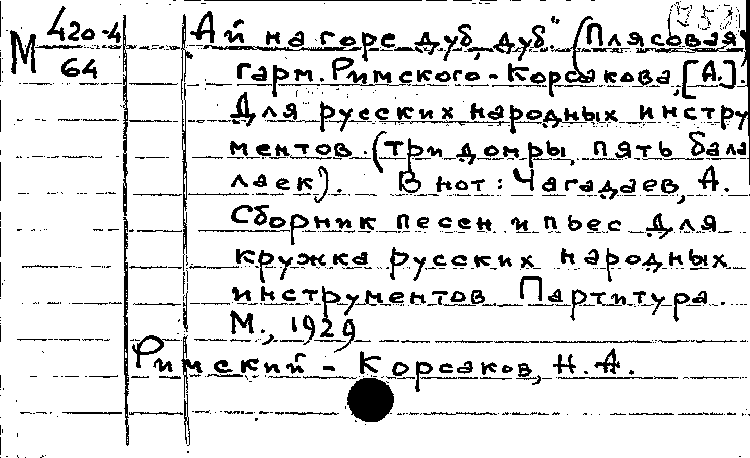 М 420-4
64
Ай на горе дуб, дуб" (Плясовая)
гарм. Римского-Корсакова, [А.].
Для русских народных инстру
ментов. (три домры, пять бала
лаек). В нот: Чагадаев, А.
Сборник песен и пьес для
кружка русских народных
инструментов Партитура.
М., 1929
Римский - Корсаков, Н.А.